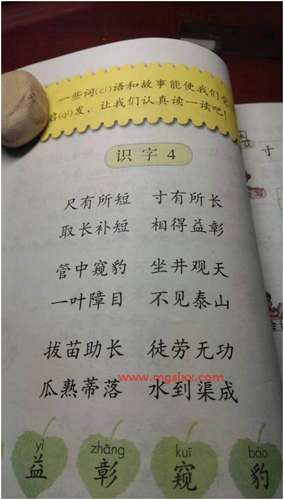 一些词(cí)语和故事能使我们受
启(qǐ)发，让我们认真读一读吧！
识字4
尺有所短 寸有所长
取长补短 相得益彰
管中窥豹 坐井观天
一叶障目 不见泰山
拔苗助长 徒劳无功
瓜熟蒂落 水到渠成
yì zhāng kuī bào
益 彰 窥 豹
寸